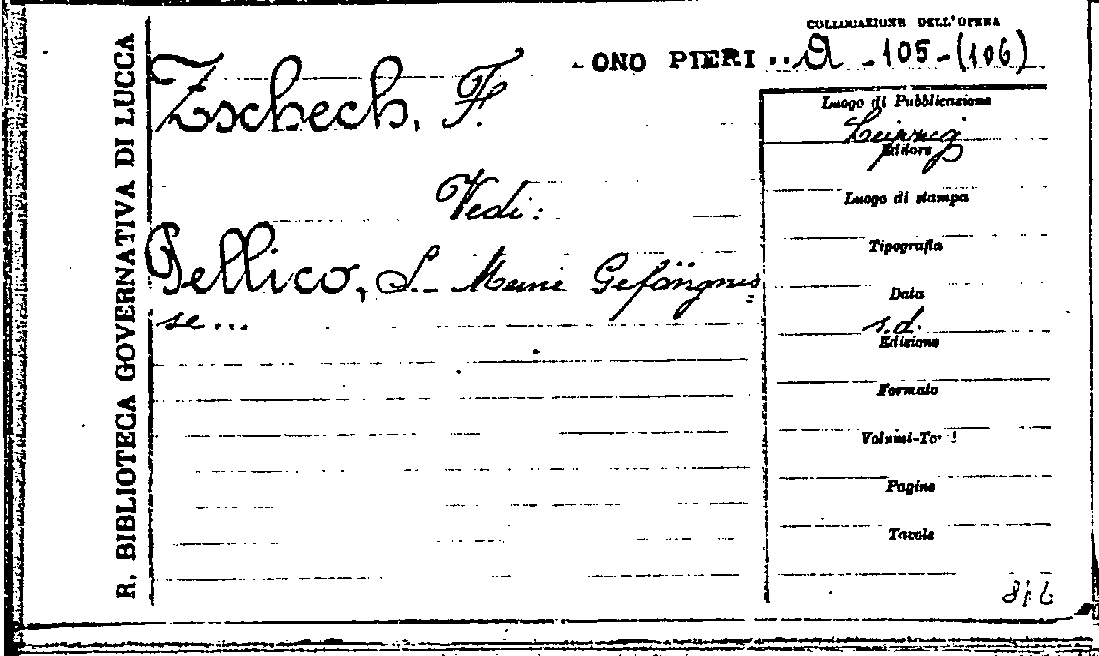 COLLOCAZIONE DELL'OPERA
- ONO PIERI .. A - 105 - (106)
R. BIBLIOTECA GOVERNATIVA DI LUCCA
Zschech, F.
Vedi:
Pellico, S. - Meine Gefängnis=
se...
Luogo di Pubblicazione
Leipzig
Editore
Luogo di stampa
Tipografia
Data
s.d.
Edizione
Formato
Volumi-To i
Pagine
Tavole